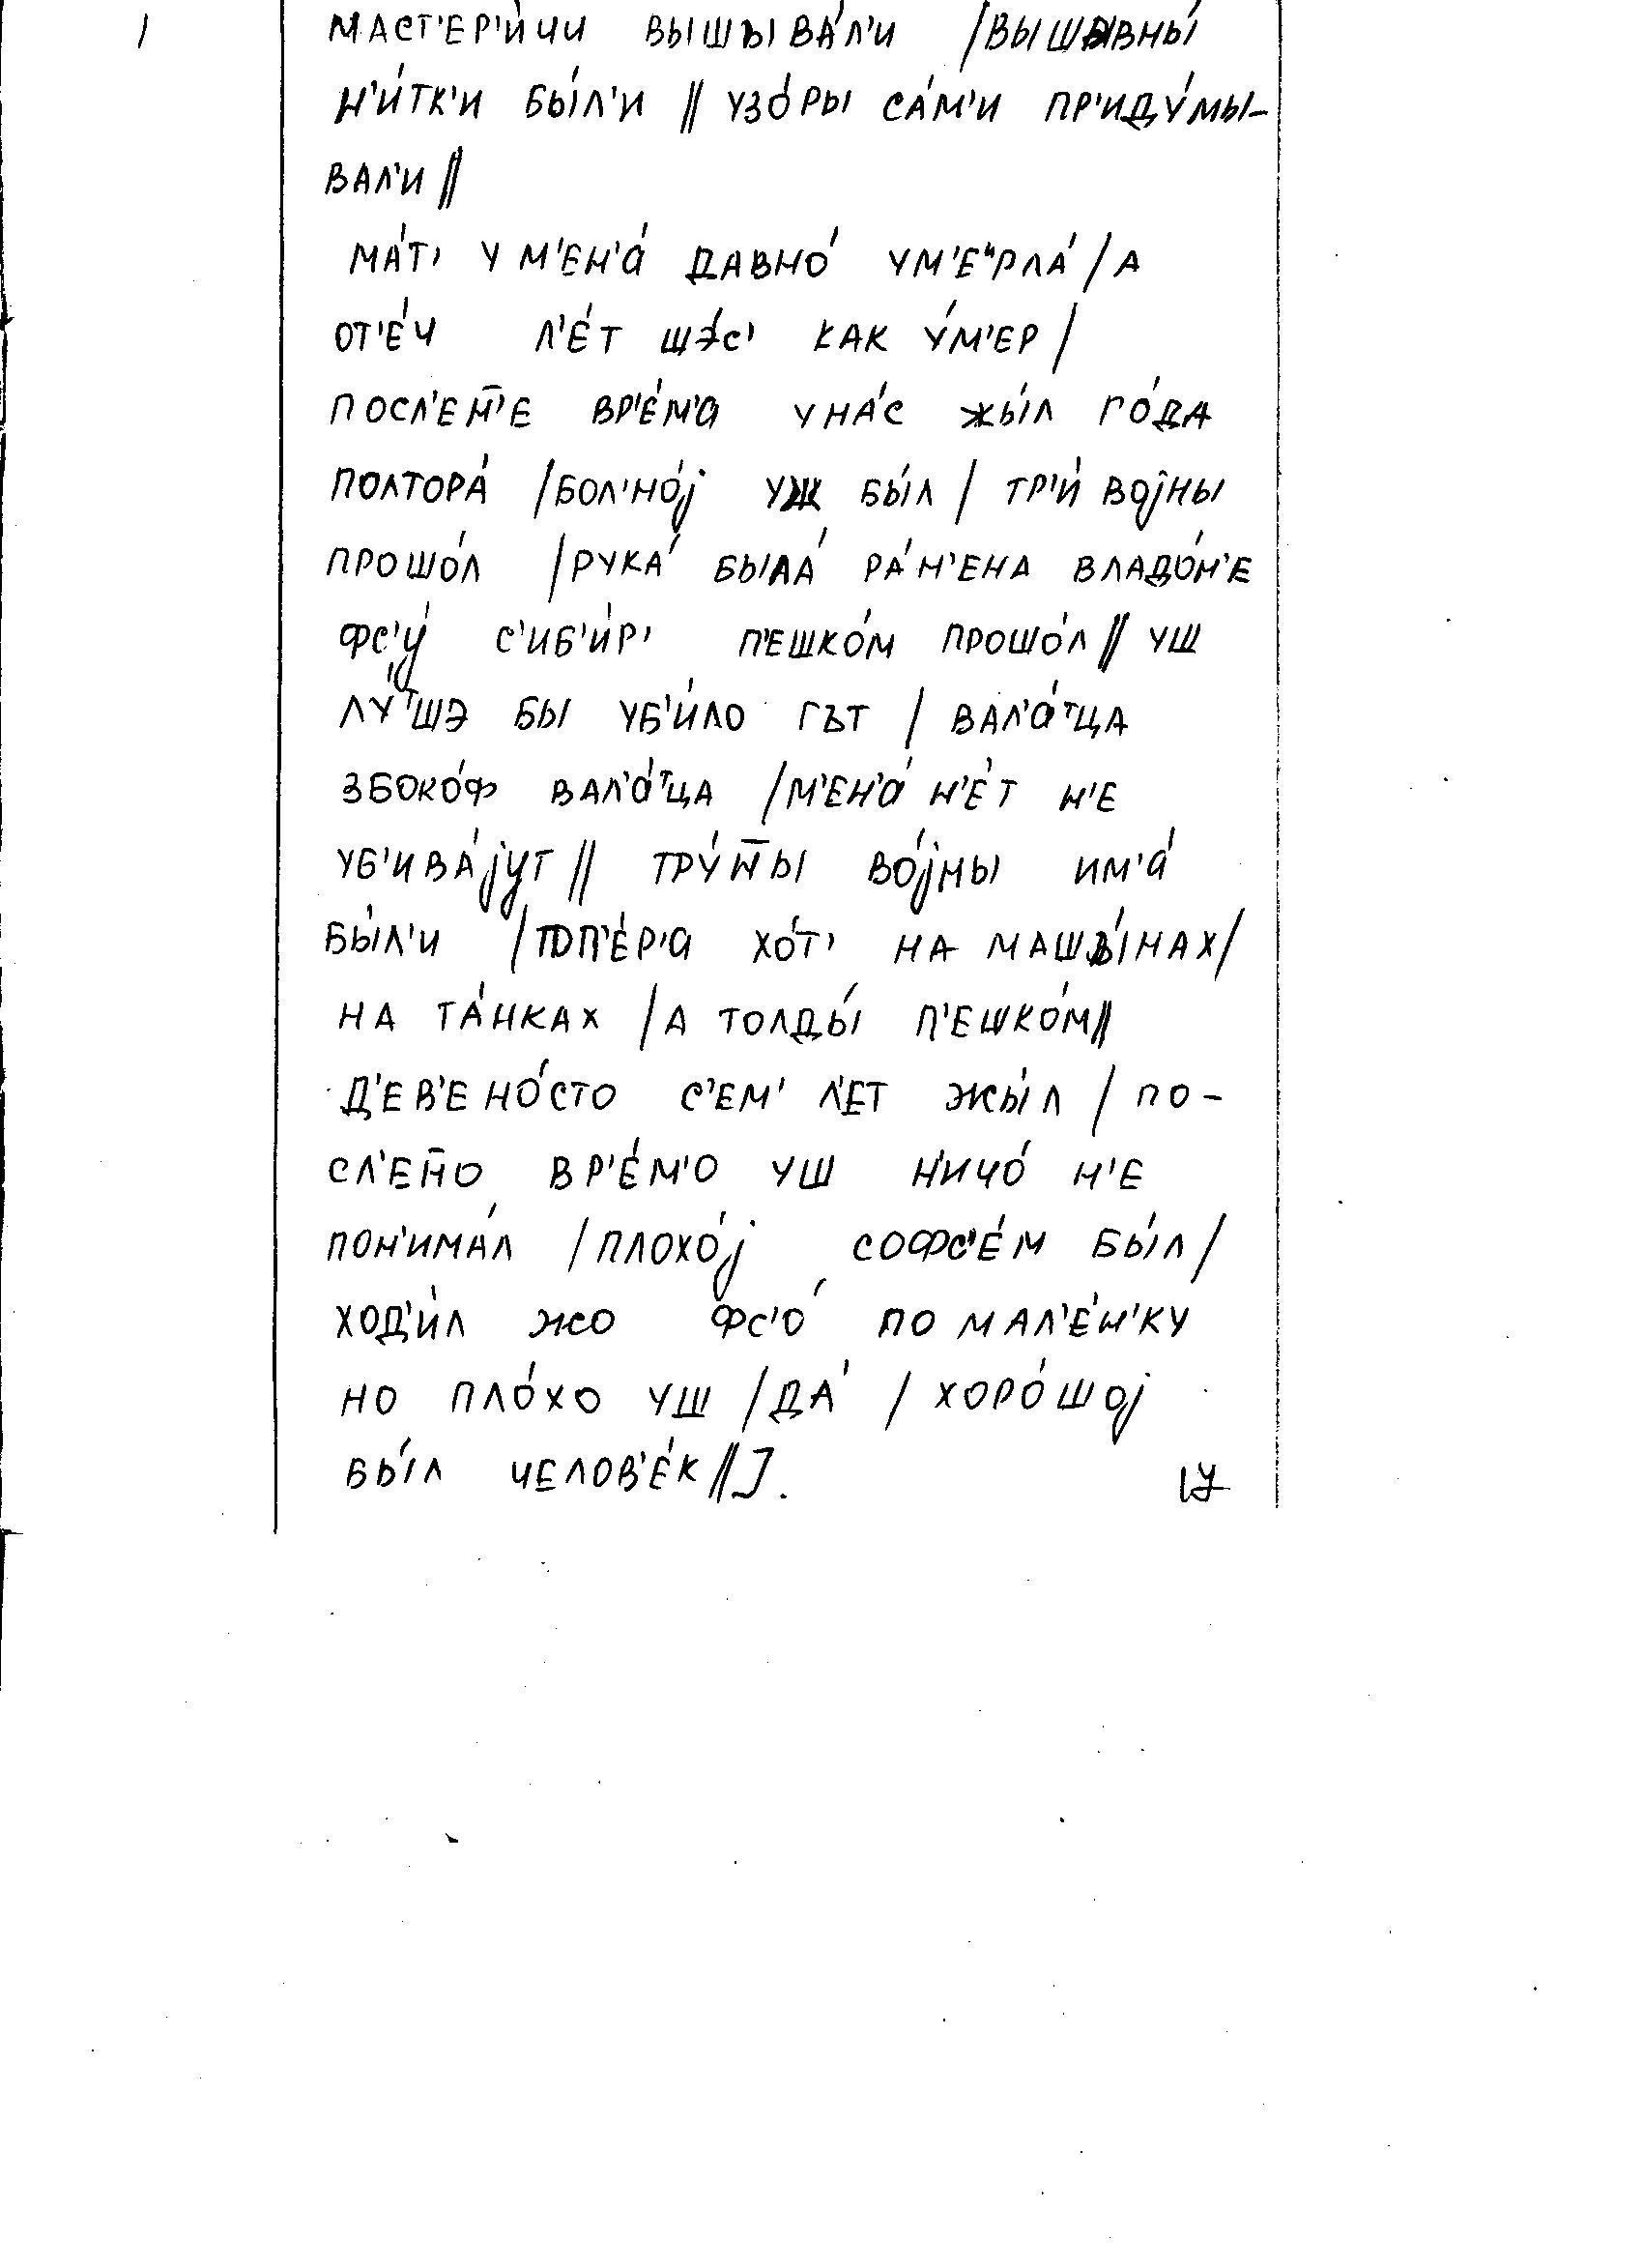 МАСТ'ЕР'И́ЧИ ВЫШЫВА́Л'И /ВЫШЫВНЫ́
Н'И́ТК'И БЫ́Л'И // УЗО́РЫ СА́М'И ПР'ИДУ́МЫ-
ВАЛ'И //
МА́Т' У М'ЕН'А́ ДАВНО́ УМ'ЕᴻРЛА́ / А
ОТ'Е́Ч Л'Е́Т ШЭ́С' КАК У́М'ЕР /
ПОСЛ'ЕН̄'Е ВР'Е́М'А У НА́С ЖЫ́Л ГО́ДА
ПОЛТОРА́ /БОЛ'НО́J УЖ БЫ́Л / ТР'И́ ВОJНЫ
ПРОШО́Л /РУКА́ БЫЛА́ РА́Н'ЕНА ВЛАДО́Н'Е
ФС'У́ С'ИБ'И́Р' П'ЕШКО́М ПРОШО́Л // УШ
ЛУ́ᵀШЭ БЫ УБ'И́ЛО ГЪТ / ВАЛ'А́ᵀЦА
ЗБОКО́Ф ВАЛ'А́ᵀЦА /М'ЕН'А́ Н'Е́Т Н'Е
УБ'ИВА́JУТ // ТРУ́Н̄Ы ВО́JНЫ ИМ'А́
БЫ́Л'И /ТОП'Е́Р'А ХО́Т' НА МАШЫ́НАХ/
НА ТА́НКАХ /А ТОЛДЫ́ П'ЕШКО́М//
Д'ЕВ'ЕНО́СТО С'ЕМ' Л'ЕТ ЖЫ́Л / ПО-
СЛ'ЕН̄О ВР'Е́М'О УШ Н'ИЧО́ Н'Е
ПОН'ИМА́Л /ПЛОХО́J СОФС'Е́М БЫ́Л/
ХОД'И́Л ЖО ФС'О́ ПО МАЛ'Е́Н'КУ
НО ПЛО́ХО УШ /ДА́ / ХОРО́ШОJ
БЫ́Л ЧЕЛОВ'Е́К //].